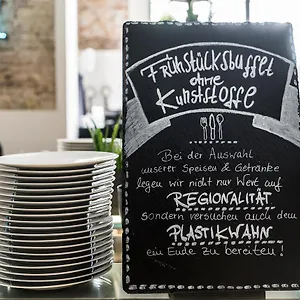 Frühstücksbuffet
ohne
Kunststoffe
Bei der Auswahl
unserer Speisen & Getränke
legen wir nicht nur Wert auf
REGIONALITÄT
sondern versuchen auch dem
PLASTIKWAHN
ein Ende zu bereiten!